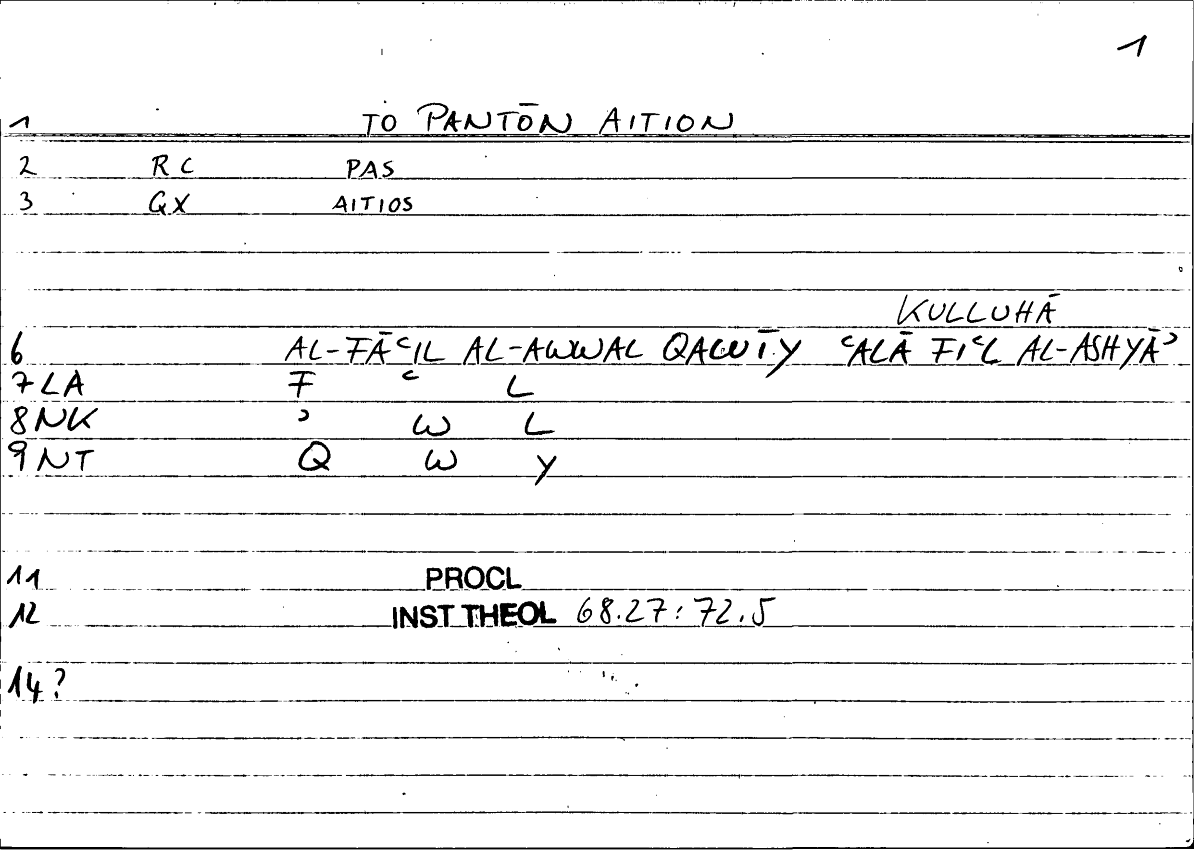 1
1 TO PANTŌN AITION
2 RC PAS
3 GX AITIOS
KULLUHĀ
6 AL-FĀʿIL AL-AWWAL QAWĪY ʿALĀ FIʿL AL-ASHYĀʾ
7 LA F ʿ L
8 NK ʾ W L
9 NT Q W Y
11 PROCL
12 INST THEOL 68.27:72.5
14?